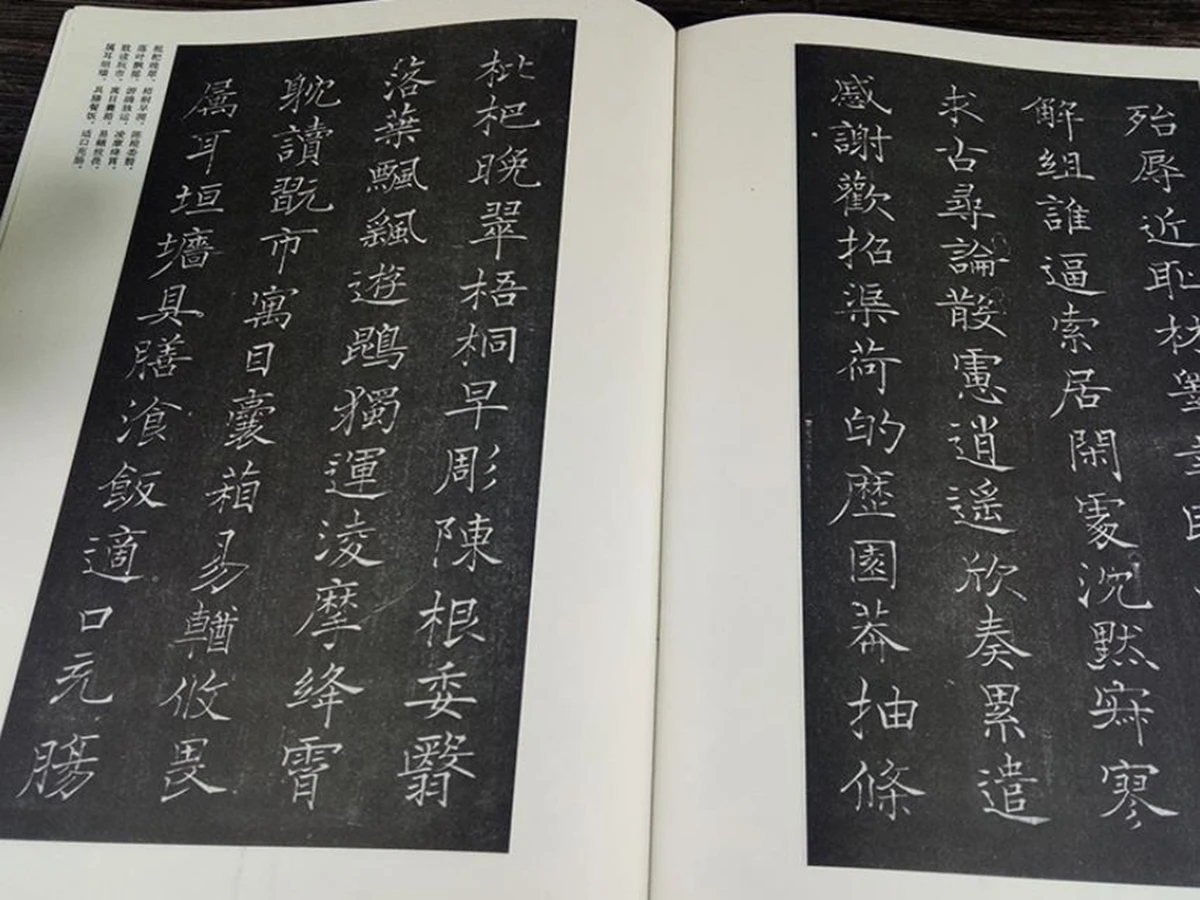 殆辱近恥林
解組誰逼索居閑處沈默寂寥
求古尋論散慮逍遥欣奏累遣
慼謝歡招渠荷的歷園莽抽條
枇杷晚翠梧桐早彫陳根委翳
落葉飄颻遊鵾獨運淩摩絳霄
耽讀翫市寓目囊葙易輶攸畏
属耳垣墻具膳飡飯適口充腸
枇杷晚翠，梧桐早凋。陈根委翳，
落叶飘摇。游鹍独运，凌摩绛霄。
耽读玩市，寓目囊箱。易輶攸畏，
属耳垣墙。具膳餐饭，适口充肠。